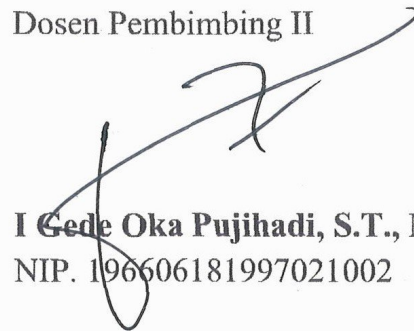 Dosen Pembimbing II
I Gede Oka Pujihadi, S.T.,
NIP. 196606181997021002